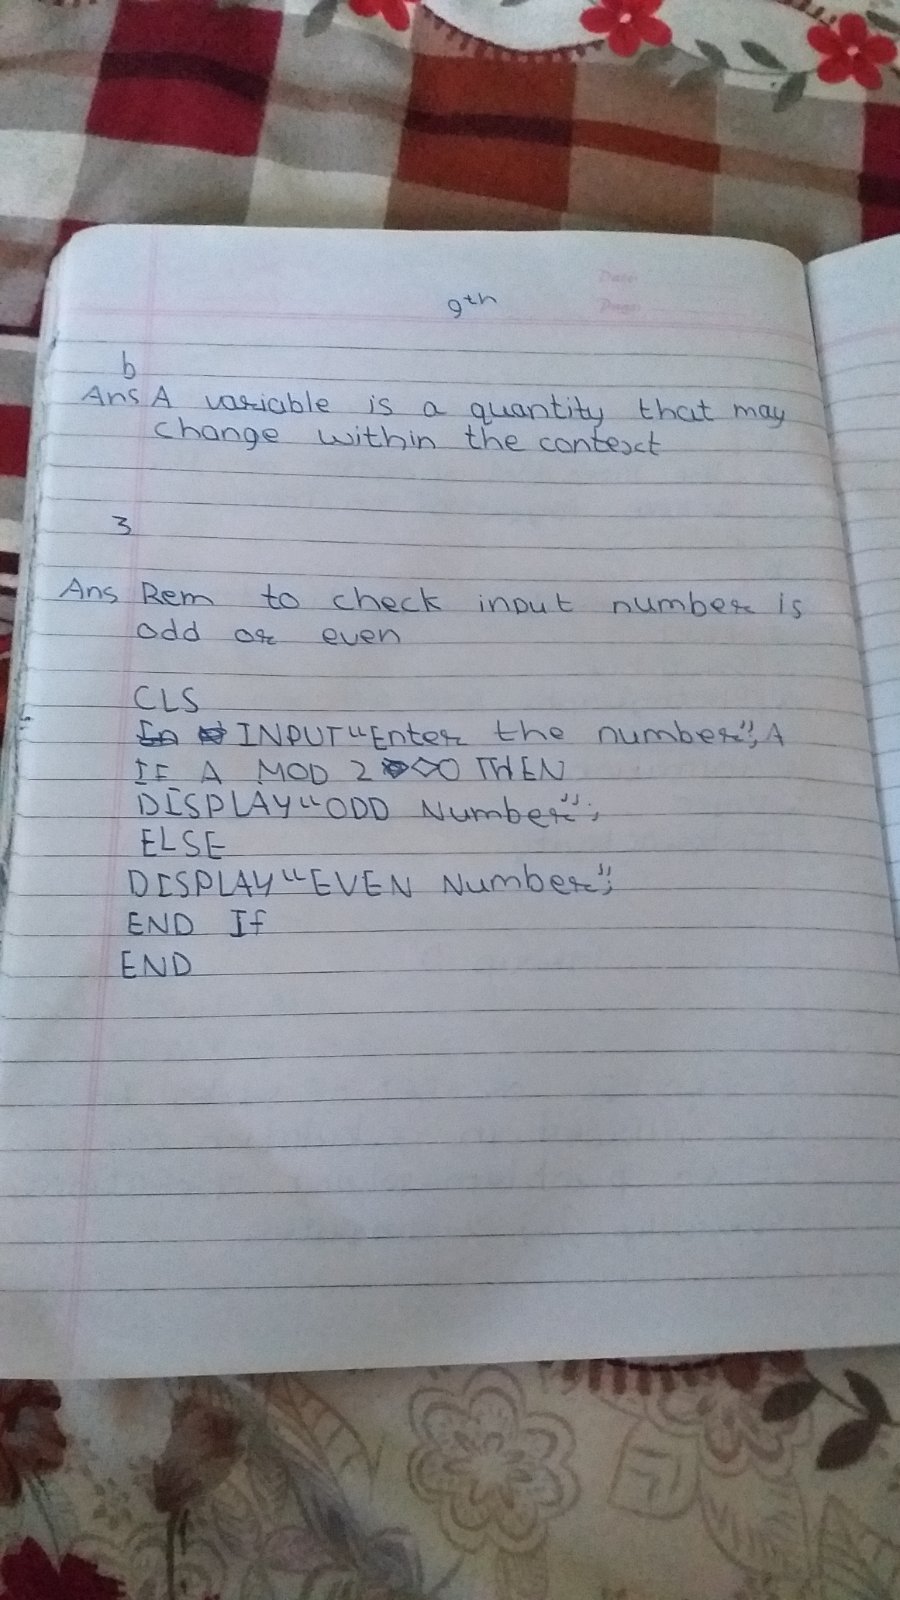 Date
Page
9th
b
Ans A variable is a quantity that may
change within the context
3
Ans Rem to check input number is
odd or even
CLS
INPUT "Enter the number"; A
IF A MOD 2 <> 0 THEN
DISPLAY "ODD Number";
ELSE
DISPLAY "EVEN Number";
END If
END